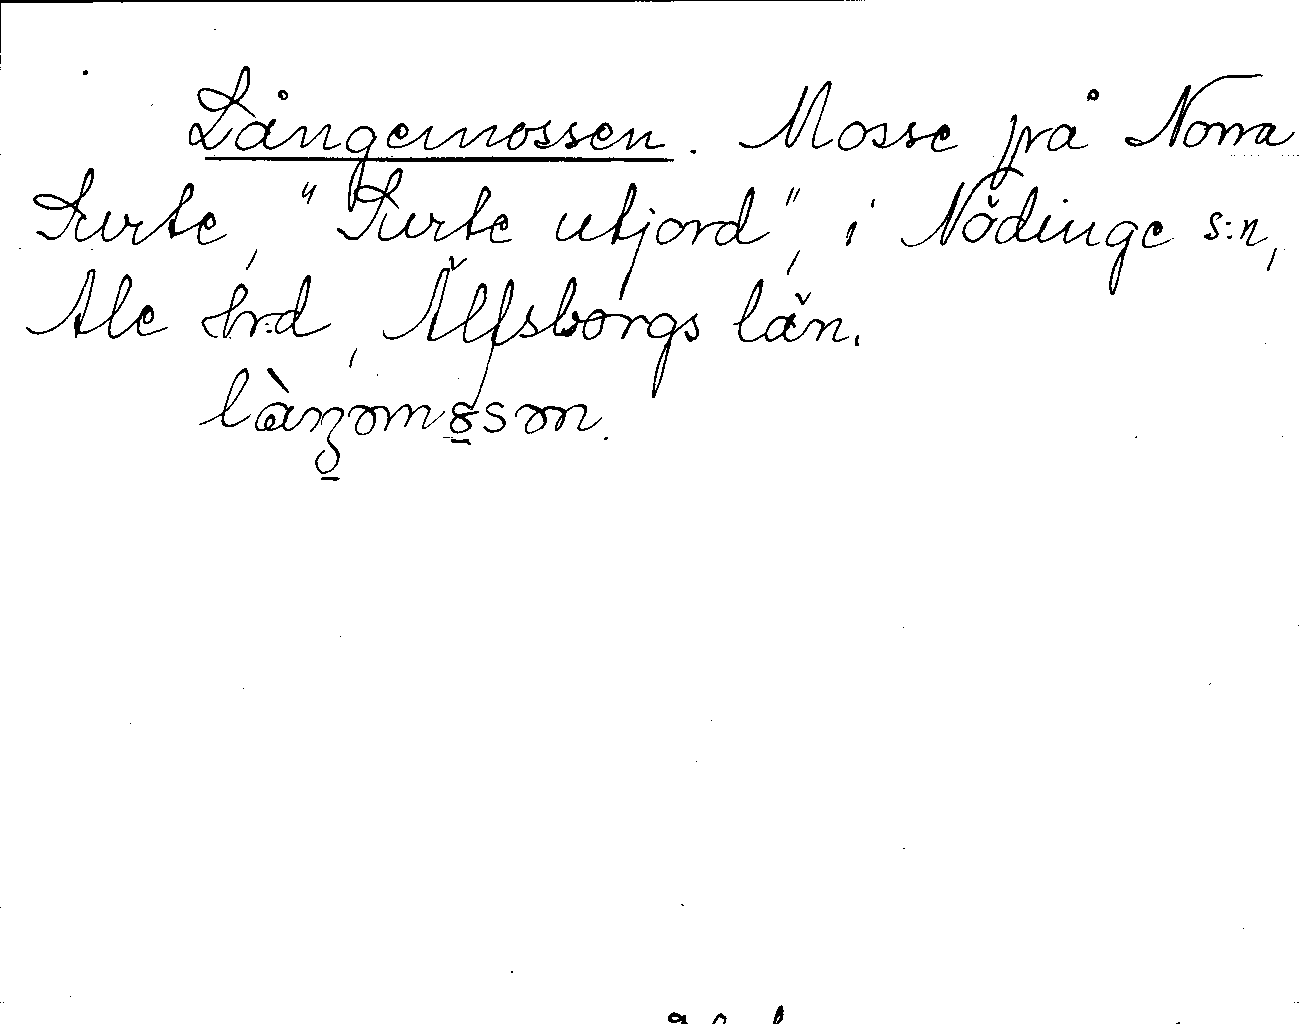 Långemossen. Mosse på Norra
Surte, "Surte utjord", i Nödinge s:n,
Ale hrd, Älfsborgs län.